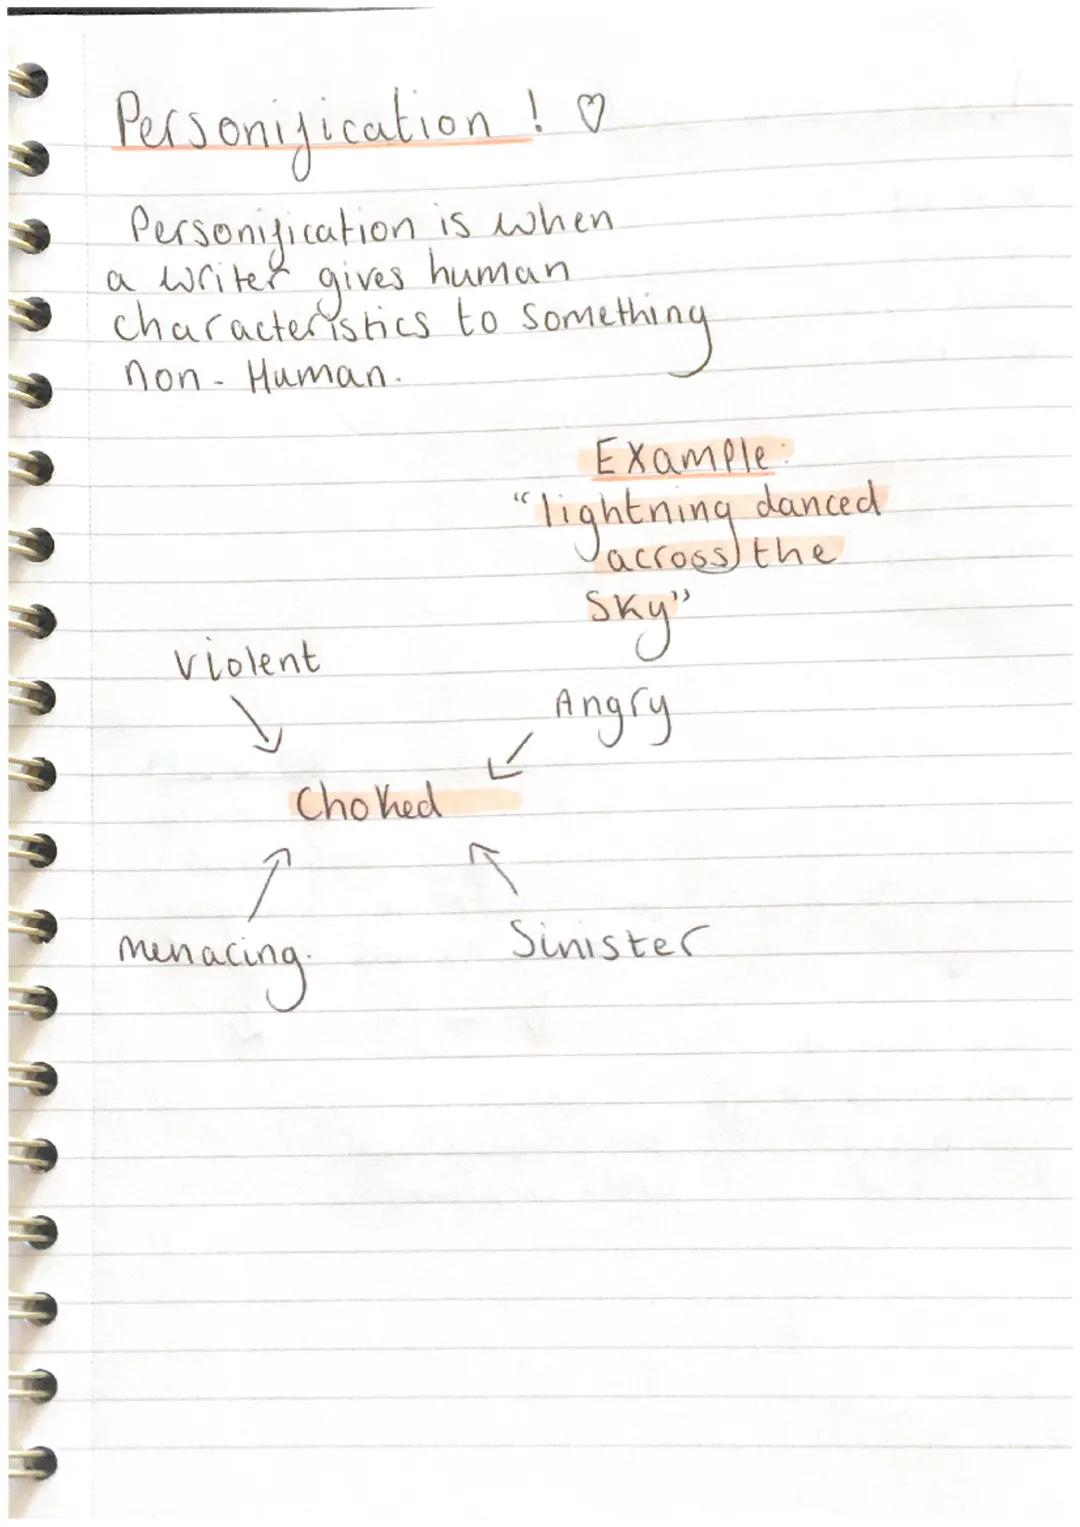 Personification ! ♡
Personification is when
a writer gives human
characteristics to something
non - Human.
Example:
"lightning danced
across the
Sky"
violent
Angry
Choked
menacing.
Sinister